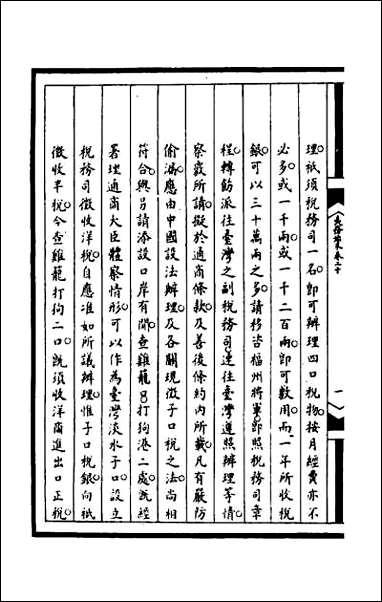 理。祇須稅務司一名。卽可辦理四口稅物。按月經費亦不
必多。或一千兩。或一千二百兩。卽可敷用。而一年所收稅
銀。可以三十萬兩之多。請移咨福州將軍。卽照稅務司章
程。轉飭派往臺灣之副稅務司速往臺灣遵照辦理等情。
察覈所請。擬於通商條款。及善後條約內所載。凡有嚴防
偷漏。應由中國設法辦理。及各關現徵子口稅之法。尚相
符合。與另請添設口岸有間。查雞籠口打狗港二處。旣經
署理通商大臣體察情形。可以作為臺灣淡水子口。設立
稅務司徵收洋稅。自應准如所議辦理。惟子口稅銀。向祇
徵收半稅。今查雞籠打狗二口。旣須收洋商進出口正稅。